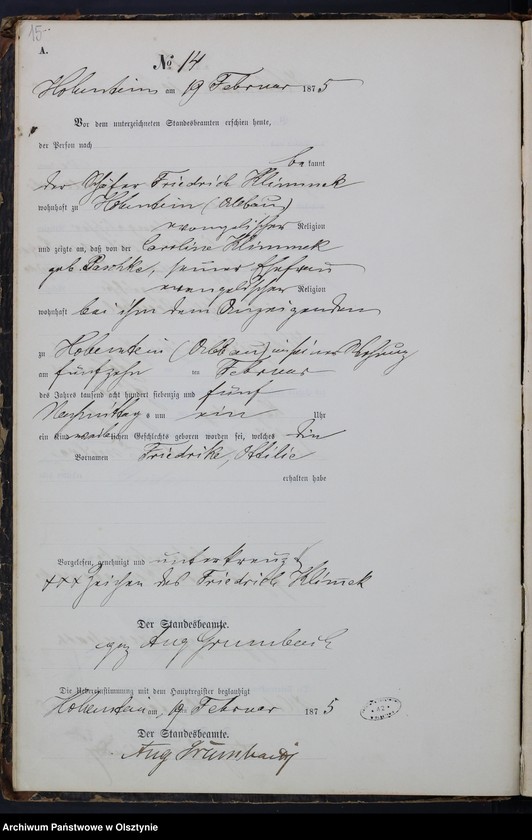 15
A.
No 14
Hohenstein am 19 Februar 1875
Vor dem unterzeichneten Standesbeamten erschien heute,
der Person nach
bekannt
der Schäfer Friedrich Klimmek
wohnhaft zu Hohenstein (Abbau)
evangelischer Religion
und zeigte an, daß von der Caroline Klimmek
geb. Paschke, seiner Ehefrau
evangelischer Religion
wohnhaft bei ihm dem Anzeigenden
zu Hohenstein (Abbau) in seiner Wohnung
am fünfzehn ten Februar
des Jahres tausend acht hundert siebenzig und fünf
Nachmittags um ein Uhr
ein Kind weiblichen Geschlechts geboren worden sei, welches die
Vornamen Friedrike, Ottilie
erhalten habe
Vorgelesen, genehmigt und unterkreuzt
+++ Zeichen des Friedrich Klimek
Der Standesbeamte.
gez Aug Grumbach
Die Uebereinstimmung mit dem Hauptregister beglaubigt
Hohenstein am 19 Februar 1875
Der Standesbeamte.
Aug Grumbach
Archiwum Państwowe w Olsztynie